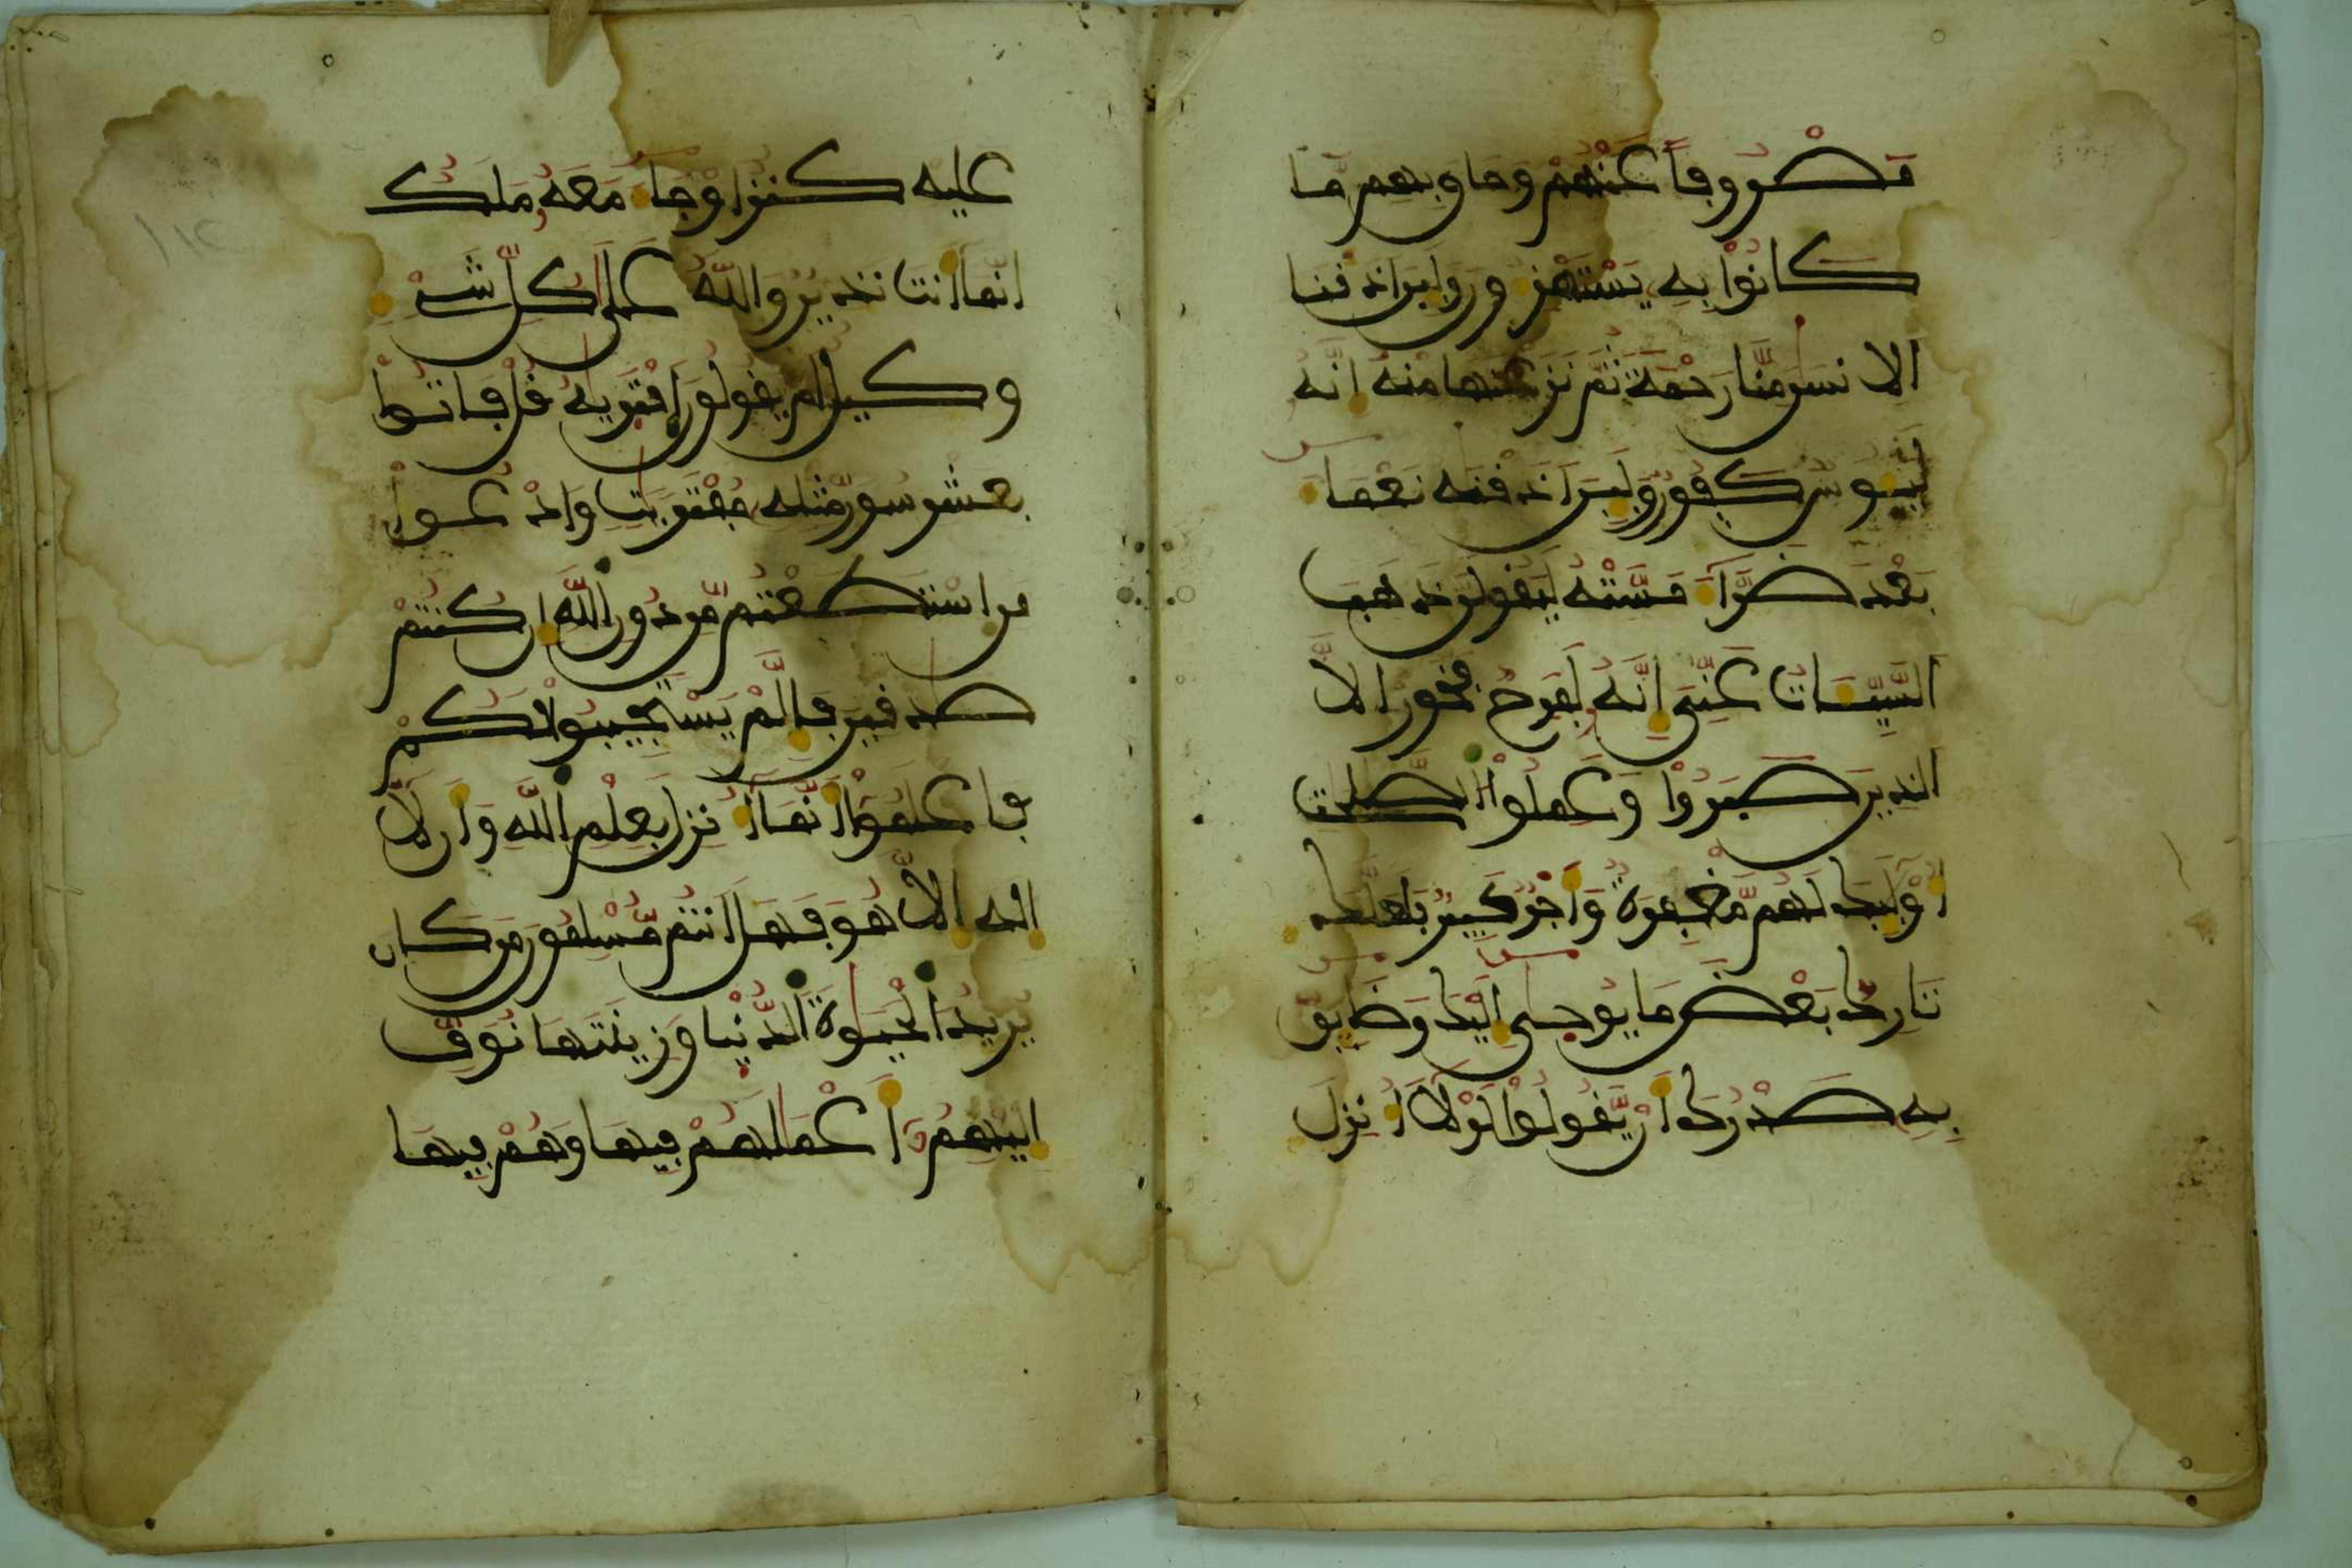 مَصْرُوفاً عَنْهُمْ وَحَاقَ بِهِم مَّا
كَانُواْ بِهِ يَسْتَهْزِءُونَ وَلَئِنَ اَذَقْنَا
الاِنسَٰنَ مِنَّا رَحْمَةً ثُمَّ نَزَعْنَٰهَا مِنْهُ إِنَّهُ
لَيَـُٔوسٌ كَفُورٌ وَلَئِنَ اَذَقْنَٰهُ نَعْمَآءَ
بَعْدَ ضَرَّآءَ مَسَّتْهُ لَيَقُولَنَّ ذَهَبَ
السَّيِّـَٔاتُ عَنِّى إِنَّهُ لَفَرِحٌ فَخُورٌ الَّا
الذِينَ صَبَرُواْ وَعَمِلُواْ الصَّٰلِحَٰتِ
أُوْلَٰٓئِكَ لَهُم مَّغْفِرَةٌ وَأَجْرٌ كَبِيرٌ فَلَعَلَّكَ
تَارِكُ بَعْضَ مَا يُوحَىٰٓ إِلَيْكَ وَضَآئِقٌ
بِهِ صَدْرُكَ أَنْ يَّقُولُواْ لَوْلَآ أُنزِلَ
عَلَيْهِ كَنزٌ اَوْ جَآءَ مَعَهُ مَلَكٌ
اِنَّمَآ أَنتَ نَذِيرٌ وَاللَّهُ عَلَىٰ كُلِّ شَےْءٍ
وَكِيلٌ اَمْ يَقُولُونَ اَفْتَرَيٰهُ قُلْ فَاتُواْ
بِعَشْرِ سُوَرٍ مِّثْلِهِ مُفْتَرَيَٰتٍ وَادْعُواْ
مَنِ اِسْتَطَعْتُم مِّن دُونِ اللَّهِ إِن كُنتُمْ
صَٰدِقِينَ فَإِلَّمْ يَسْتَجِيبُواْ لَكُمْ
فَاعْلَمُوٓاْ أَنَّمَآ أُنزِلَ بِعِلْمِ اللَّهِ وَأَن لَّآ
إِلَٰهَ إِلَّا هُوَ فَهَلَ اَنتُم مُّسْلِمُونَ مَن كَانَ
يُرِيدُ الْحَيَوٰةَ الدُّنْيَا وَزِينَتَهَا نُوَفِّ
إِلَيْهِمُۥٓ أَعْمَٰلَهُمْ فِيهَا وَهُمْ فِيهَا